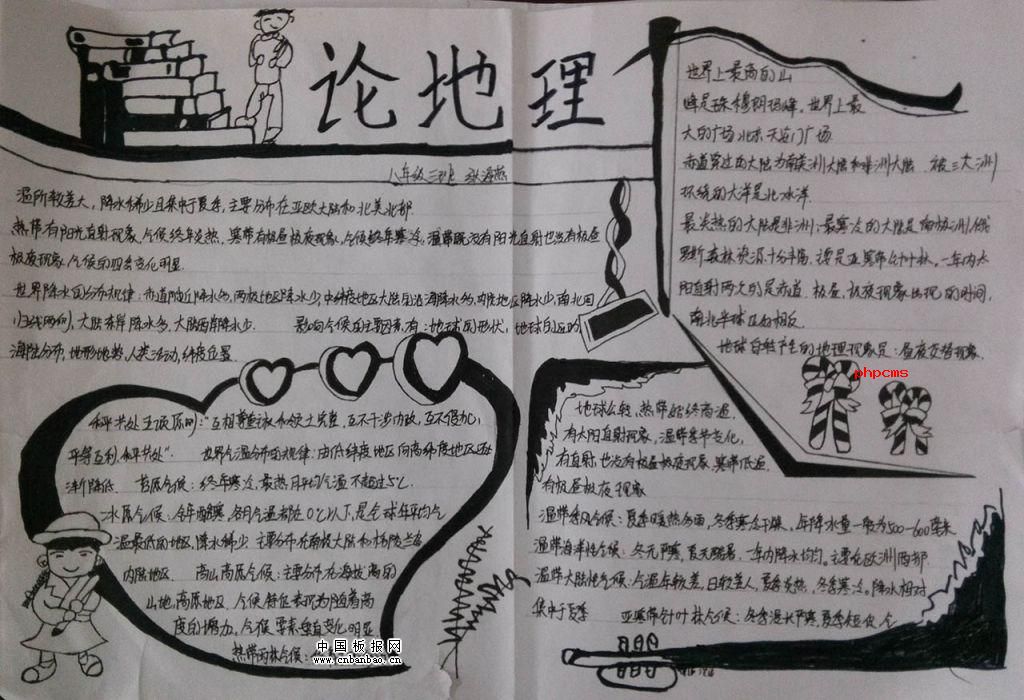 论地理
八年级三班
温所较差大，降水稀少且集中于夏季，主要分布在亚欧大陆和北美北部．
热带有阳光直射现象，气候终年炎热．寒带有极昼极夜现象，气候终年寒冷；温带既没有阳光直射也没有极昼
极夜现象，气候的四季变化明显．
世界降水的分布规律：赤道附近降水多，两极地区降水少，中纬度地区大陆沿海降水多，内陆地区降水少，南北回
归线两侧，大陆东岸降水多，大陆西岸降水少．　影响气候的主要因素，有：地球的形状，地球的
海陆分布，地形地势，人类活动，纬度位置．
世界上最高的山
峰是珠穆朗玛峰．世界上最
大的广场北京天安门广场．
赤道穿过的大陆为南美洲大陆和非洲大陆．被三大洲
环绕的大洋是北冰洋．
最炎热的大陆是非洲；最寒冷的大陆是南极洲．俄
罗斯森林资源十分丰富，主要是亚寒带针叶林．一年内太
阳直射两次的是赤道．极昼，极夜现象出现的时间，
南北半球正好相反．
地球自转产生的地理现象是：昼夜交替现象．
phpcms
和平共处五项原则："互相尊重主权和领土完整，互不干涉内政，互不侵犯，
平等互利，和平共处"．　世界气温分布的规律：由低纬度地区向高纬度地区逐
渐降低．苔原气候：终年寒冷，最热月平均气温不超过5℃．
冰原气候：全年酷寒，各月气温都在0℃以下，是全球年平均气
温最低的地区，降水稀少．主要分布在南极大陆和格陵兰岛
内陆地区．　高山高原气候：主要分布在海拔高的
山地，高原地区．气候特征表现为随着高
度的增加，气候要素垂直变化明显．
热带雨林气候：
地球五带，热带始终高温，
有太阳直射现象，温带季节变化，
有直射，也没有极昼极夜现象．寒带低温．
有极昼极夜现象
温带季风气候：夏季暖热多雨，冬季寒冷干燥．年降水量一般为500—600毫米
温带海洋性气候：冬无严寒，夏无酷暑．一年内降水均匀．主要在欧洲西部．
温带大陆性气候：气温年较差，日较差大，夏季炎热，冬季寒冷．降水相对
集中于夏季　亚寒带针叶林气候：冬季漫长严寒，夏季短促，气
中国板报网
www.cnbanbao.cn